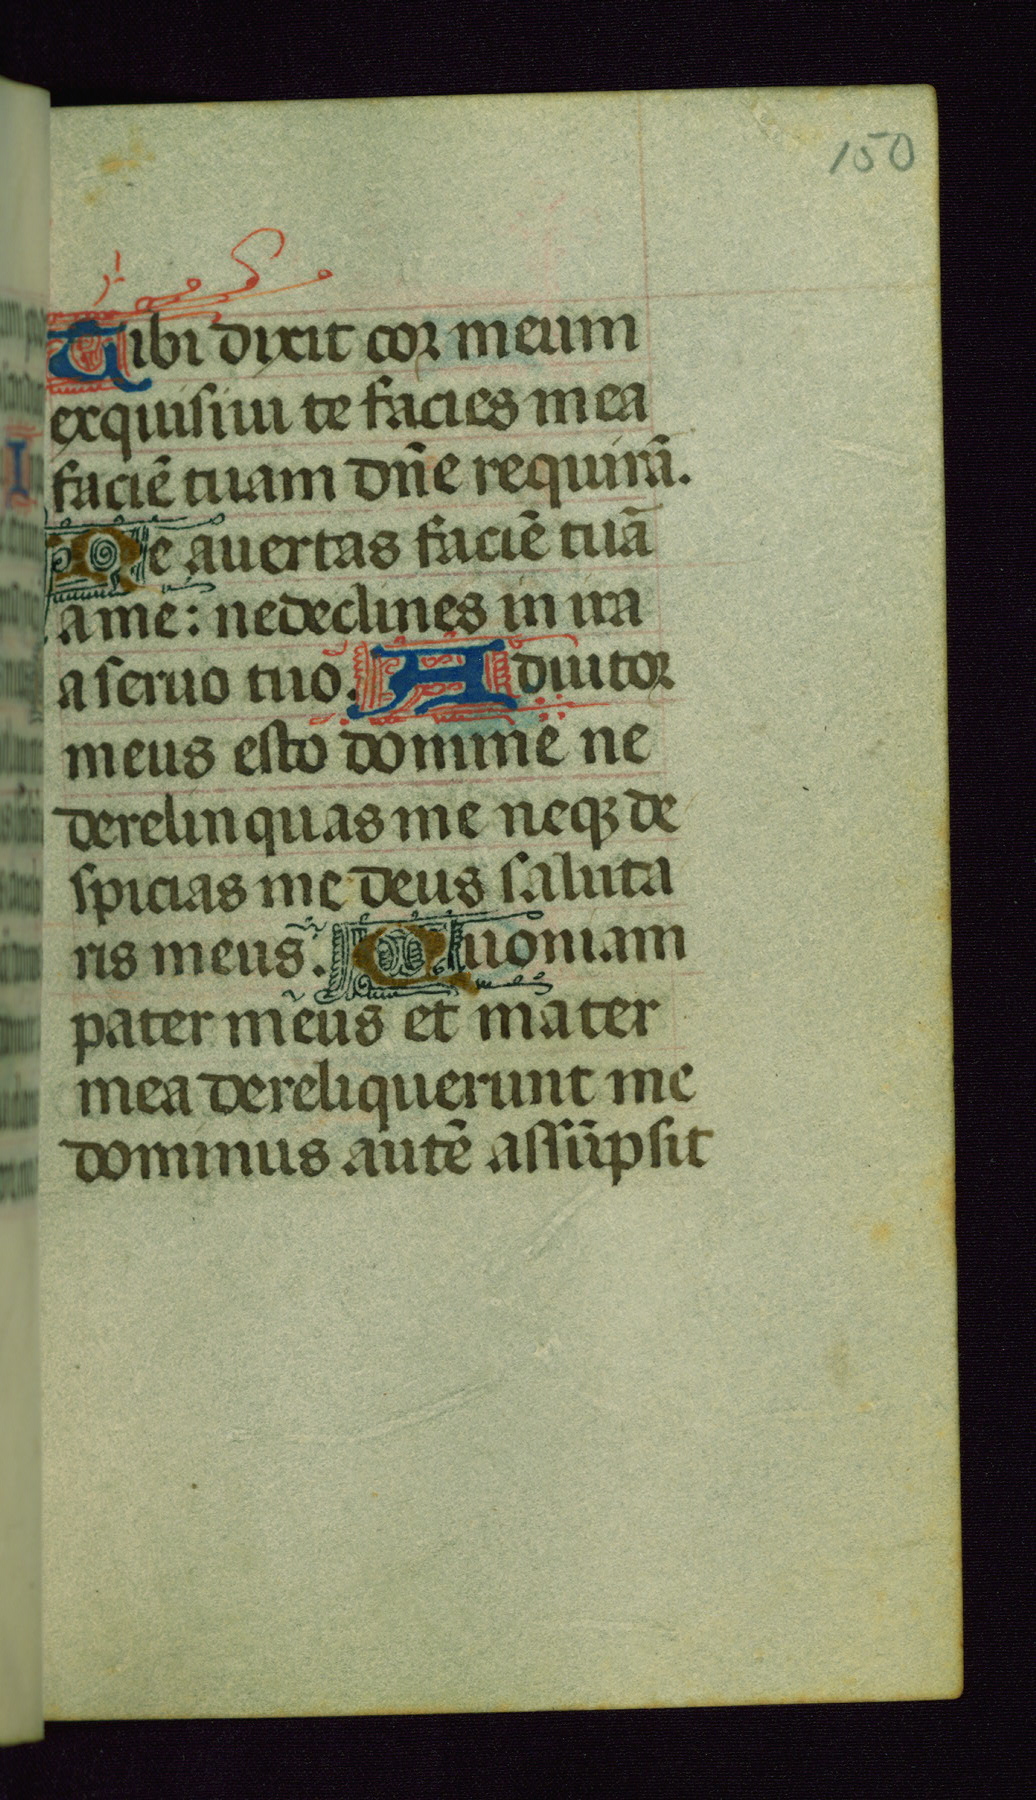 150
Tibi dixit cor meum
exquisiui te facies mea
faciē tuam dn̄e requirā.
Ne auertas faciē tuā
a me: ne declines in ira
a seruo tuo. Adiutor
meus esto domine ne
derelinquas me neqꝫ de
spicias me deus saluta
ris meus. Quoniam
pater meus et mater
mea dereliquerunt me
dominus autē assūpsit